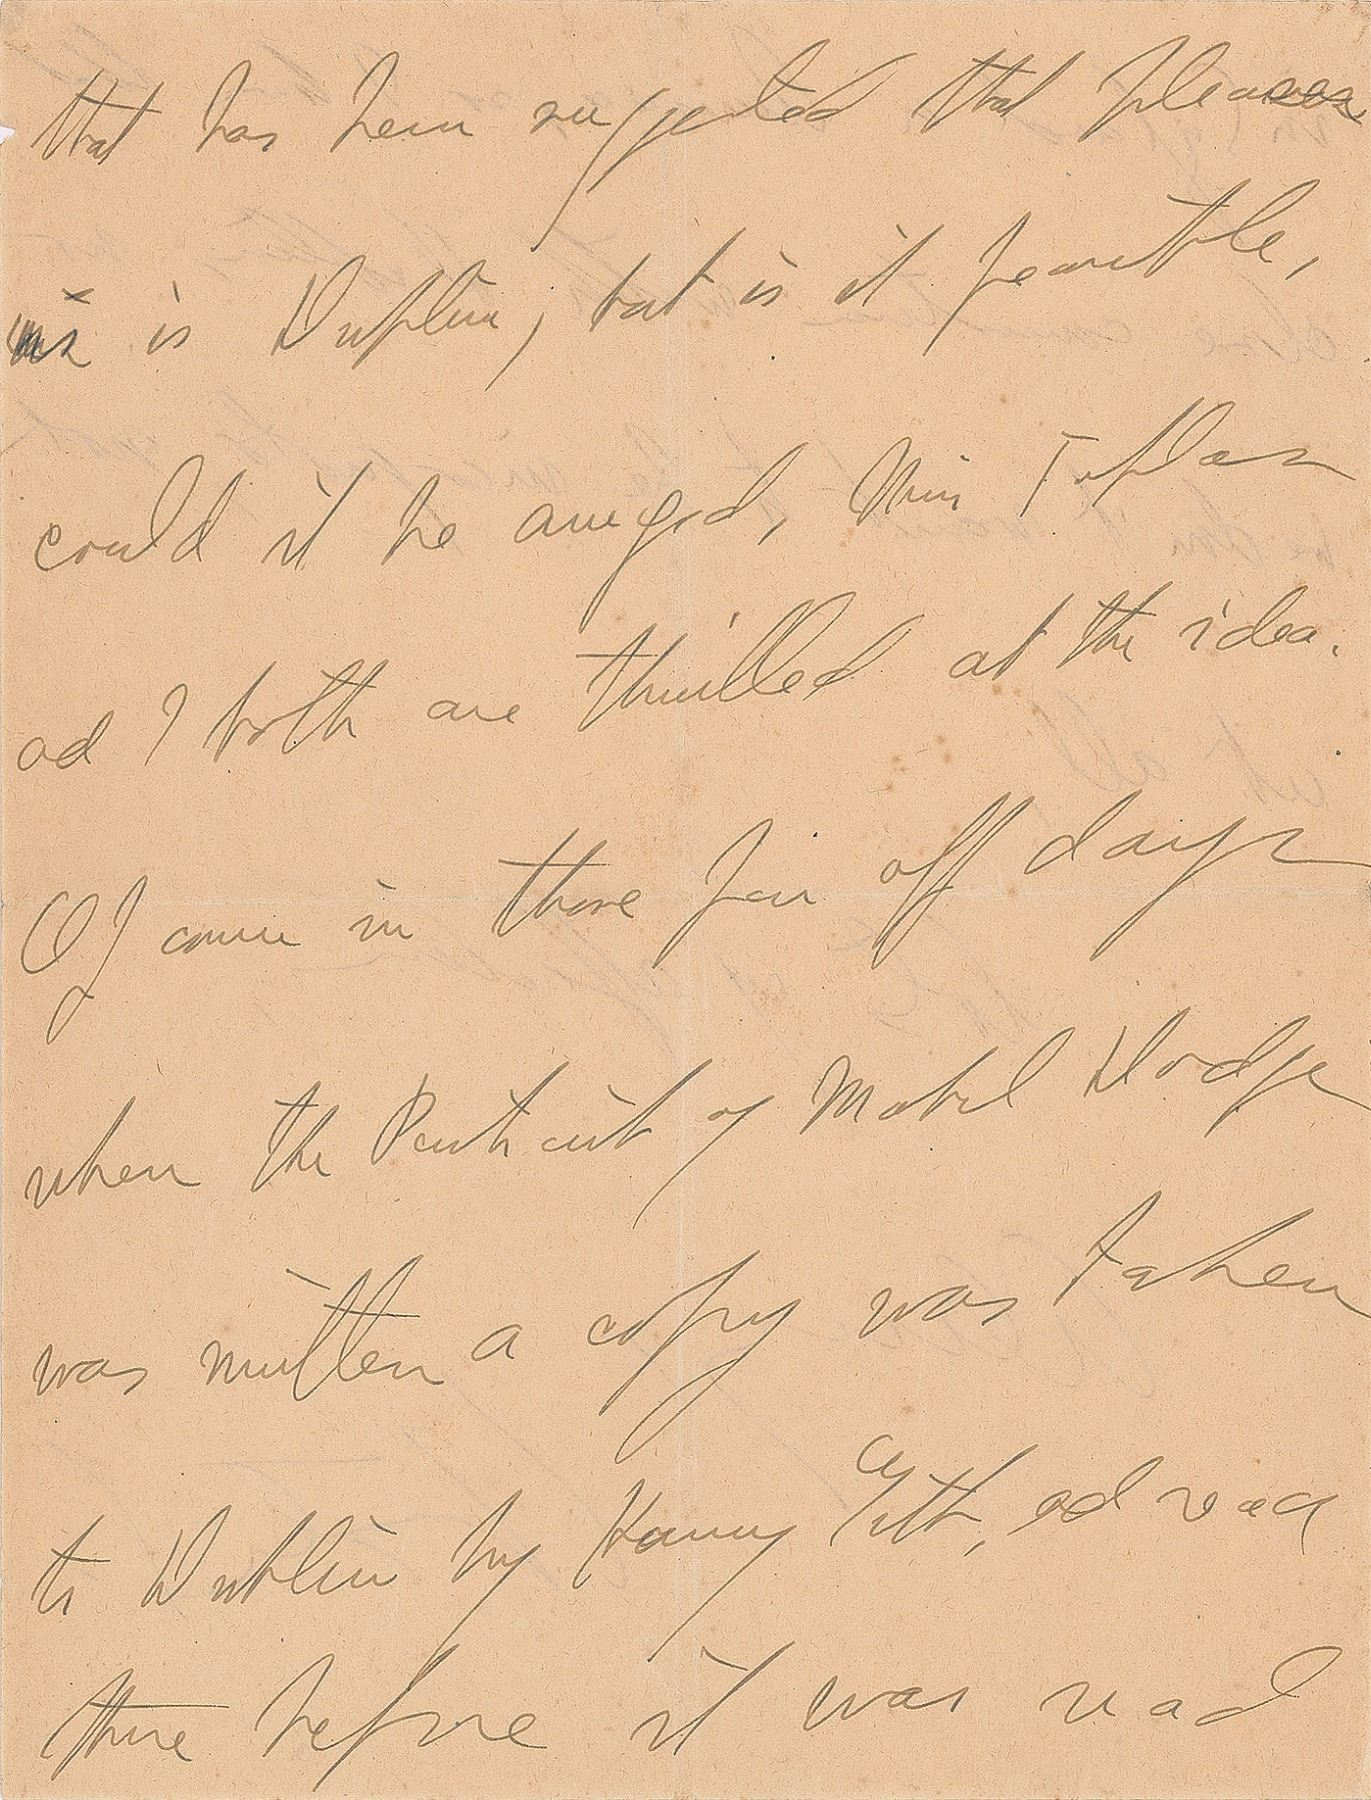 that has been suggested that pleases
me is Dublin, but is it feasible,
could it be arranged, Miss Toklas
and I both are thrilled at the idea.
Of course in those far off days
when the Portrait of Mabel Dodge
was written a copy was taken
to Dublin by Hanny Gith, and read
there before it was read